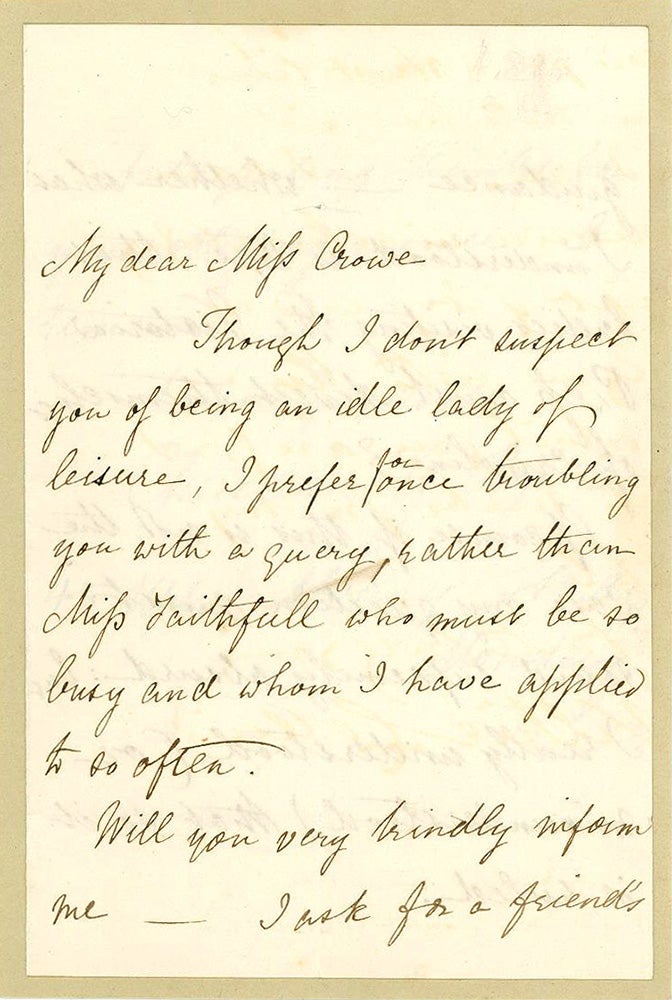 My dear Miss Crowe
Though I don't suspect
you of being an idle lady of
leisure, I prefer for once troubling
you with a query, rather than
Miss Faithfull who must be so
busy and whom I have applied
to so often.
Will you very kindly inform
me — I ask for a friend's